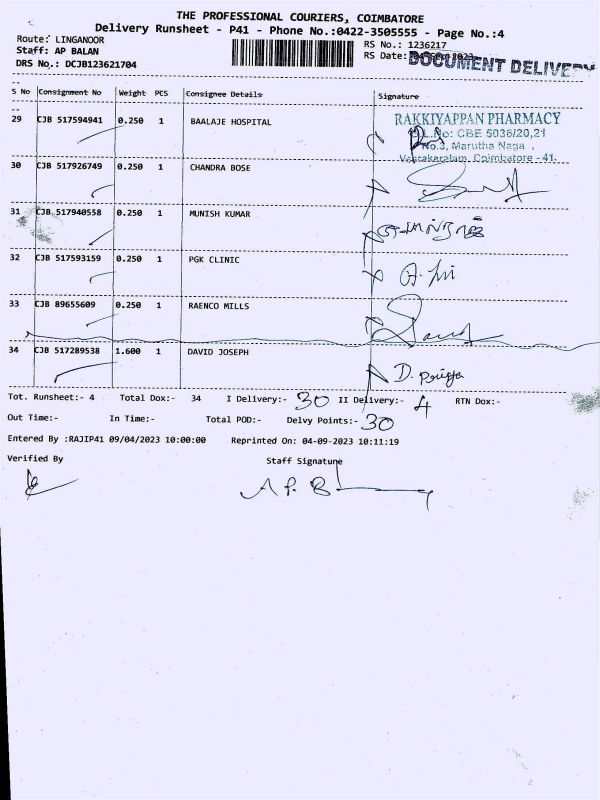 THE PROFESSIONAL COURIERS, COIMBATORE
Delivery Runsheet - P41 - Phone No.:0422-3505555 - Page No.:4
Route: LINGANOOR RS No.: 1236217
Staff: AP BALAN RS Date: 2023
DOCUMENT DELIVERY
DRS No.: DCJB123621704
S No Consignment No Weight PCS Consignee Details Signature
29 CJB 517594941 0.250 1 BAALAJE HOSPITAL
RAKKIYAPPAN PHARMACY
D.L.No: CBE 5036/20,21
No.3, Marutha Naga ,
Coimbatore - 41.
30 CJB 517926749 0.250 1 CHANDRA BOSE
31 CJB 517940558 0.250 1 MUNISH KUMAR
32 CJB 517593159 0.250 1 PGK CLINIC
33 CJB 89655609 0.250 1 RAENCO MILLS
34 CJB 517289538 1.600 1 DAVID JOSEPH
Tot. Runsheet:- 4 Total Dox:- 34 I Delivery:- 30 II Delivery:- 4 RTN Dox:-
Out Time:- In Time:- Total POD:- Delvy Points:- 30
Entered By :RAJIP41 09/04/2023 10:00:00 Reprinted On: 04-09-2023 10:11:19
Verified By Staff Signature